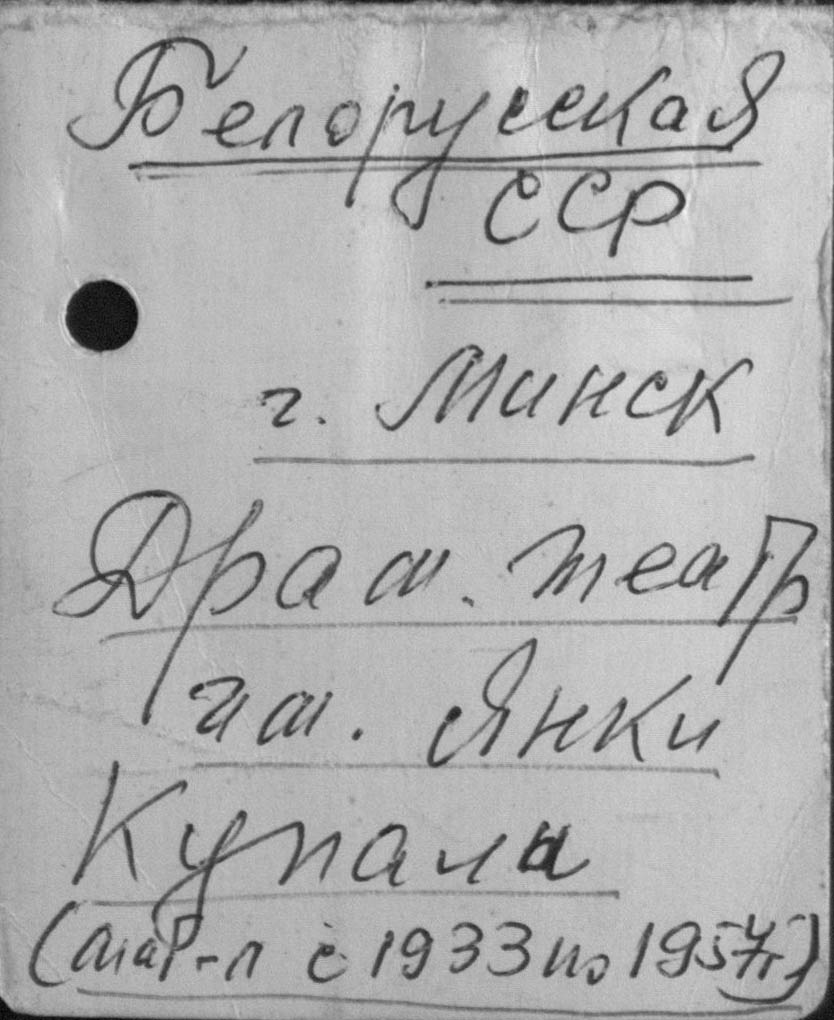 Белорусская
ССР
г. Минск
Драм. театр
им. Янки
Купала
(мат-л с 1933 по 1957г)